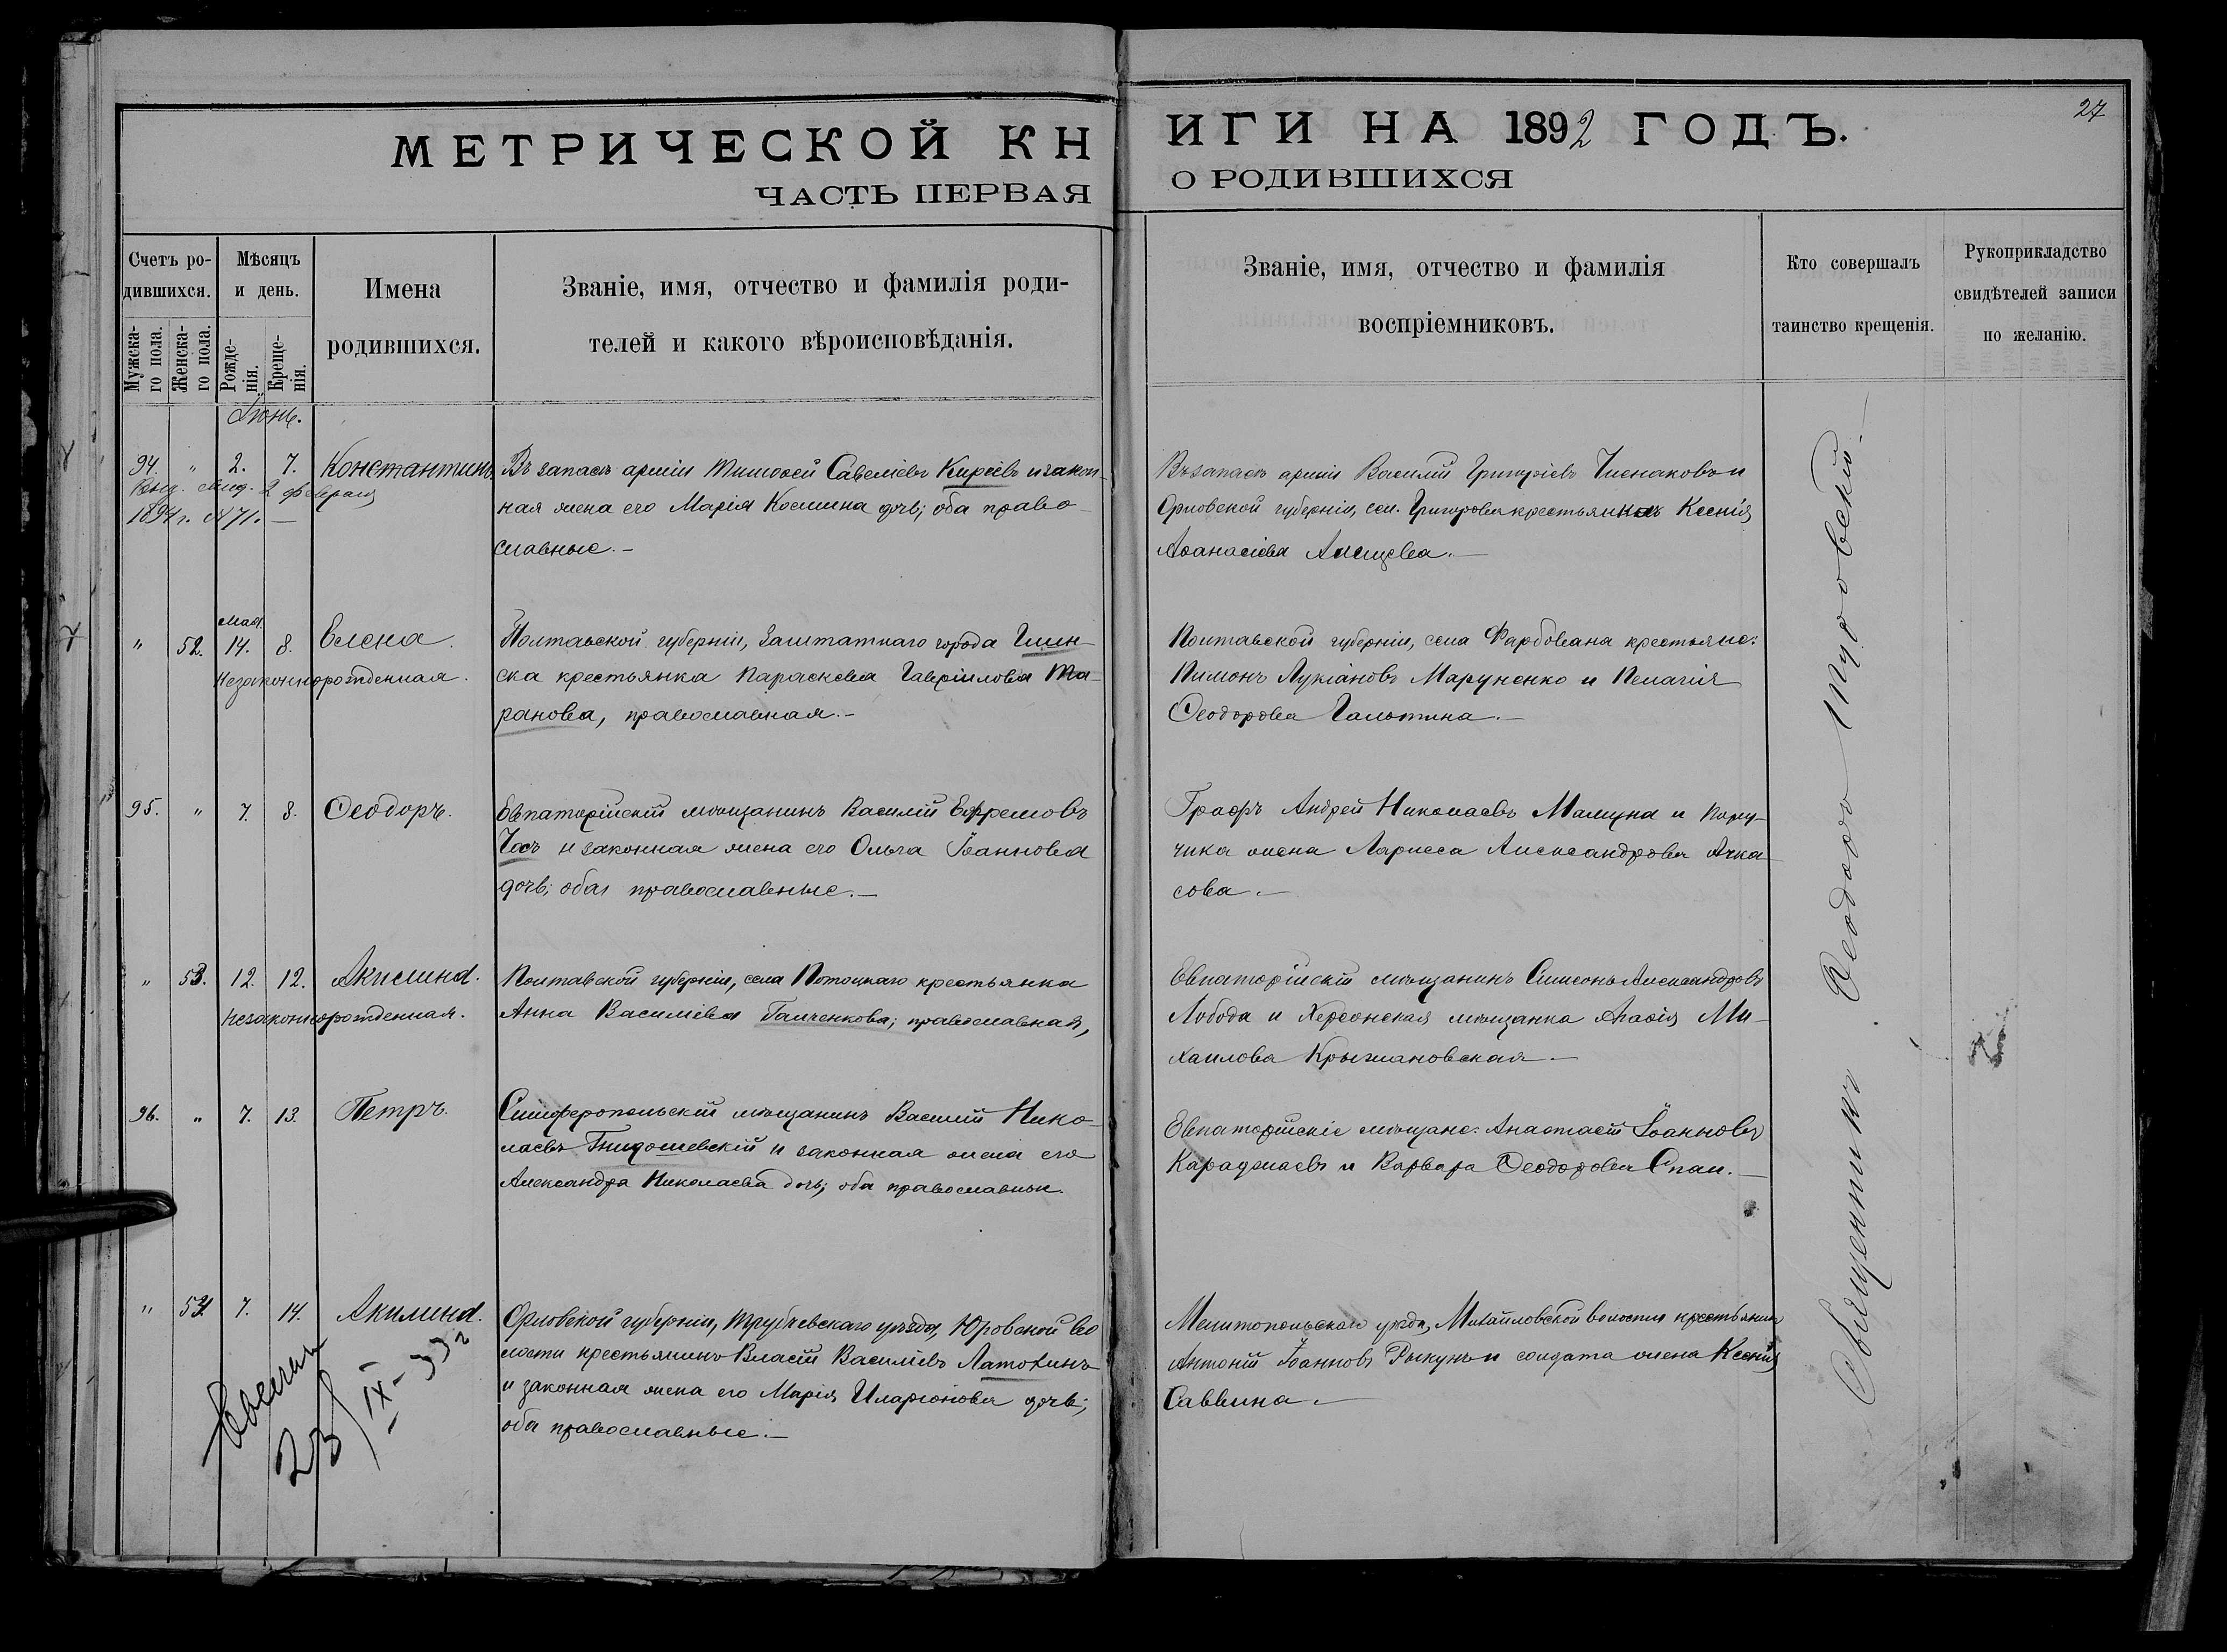 27
МЕТРИЧЕСКОЙ КНИГИ НА 1892 ГОДЪ.
ЧАСТЬ ПЕРВАЯ О РОДИВШИХСЯ
Счетъ ро-
дившихся.
Мужска-
го пола.
Женска-
го пола.
Мѣсяцъ
и день.
Рожде-
нія.
Креще-
нія.
Имена
родившихся.
Званіе, имя, отчество и фамилія роди-
телей и какого вѣроисповѣданія.
Званіе, имя, отчество и фамилія
воспріемниковъ.
Кто совершалъ
таинство крещенія.
Рукоприкладство
свидѣтелей записи
по желанію.
Іюнь.
94. " 2. 7. Константинъ.
Выд. свид. 2 февраля
1894 г. № 71. —
Въ запасѣ арміи Тимоѳей Савеліевъ Кирѣевъ и закон-
ная жена его Марія Космина дочь; оба право-
славные. —
Въ запасѣ арміи Василій Григоріевъ и
Орловской губерніи, сел. крестьянка Ксенія
Аѳанасіева
Мая.
" 52. 14. 8. Елена.
Незаконнорожденная.
Полтавской губерніи, заштатнаго города Глин-
ска крестьянка Параскева Гавріилова Та-
ранова, православная. —
Полтавской губерніи, села крестьяне:
Пимонъ Лукіановъ Маруненко и Пелагія
Ѳеодорова —
95. " 7. 8. Ѳеодоръ.
Евпаторійскій мѣщанинъ Василій Ефремовъ
и законная жена его Ольга Іоаннова
дочь; оба православные. —
Графъ Андрей Николаевъ Мамуна и пору-
чика жена Лариса Александрова Ачка-
сова. —
" 53. 12. 12. Акилина.
Незаконнорожденная.
Полтавской губерніи, села Потоцкаго крестьянка
Анна Василіева Галченкова; православная,
Евпаторійскій мѣщанинъ Симеонъ Александровъ
Лобода и Херсонская мѣщанка Агаѳія Ми-
хаилова Крыжановская —
96. " 7. 13. Петръ.
Симферопольскій мѣщанинъ Василій Нико-
лаевъ и законная жена его
Александра Николаева дочь; оба православные.
Евпаторійскіе мѣщане: Анастасій Іоанновъ
и Варвара Ѳеодорова —
" 54. 7. 14. Акилина.
Орловской губерніи, Трубчевскаго уѣзда, Юровской во
лости крестьянинъ Власій Василіевъ Латохинъ
и законная жена его Марія Иларіонова дочь;
оба православные. —
Мелитопольскаго уѣзда, Михайловской волости крестьянинъ
Антоній Іоанновъ Рыкунъ и солдата жена Ксенія
Саввина —
IX-33г
Священникъ Ѳеодоръ